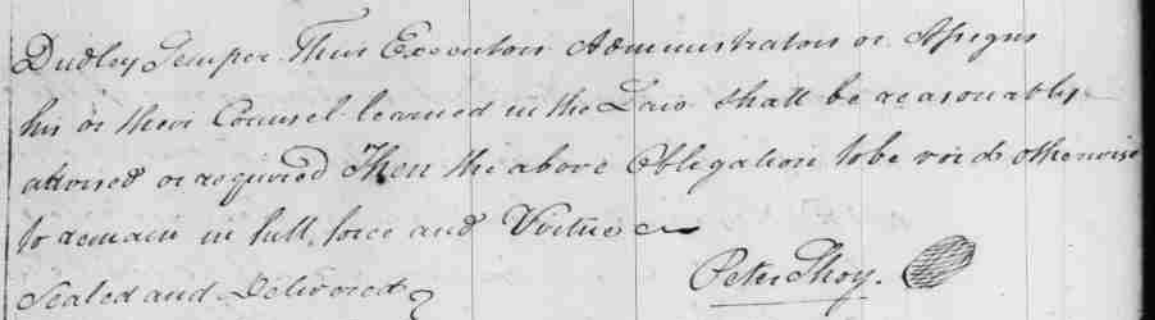 Dudley Semper Their Executors Administrators or Assigns
his or their Counsel learned in the Law shall be reasonably
advised or required Then the above Obligation to be void otherwise
to remain in full force and Virtue
Sealed and Delivered
Peter Thoy.